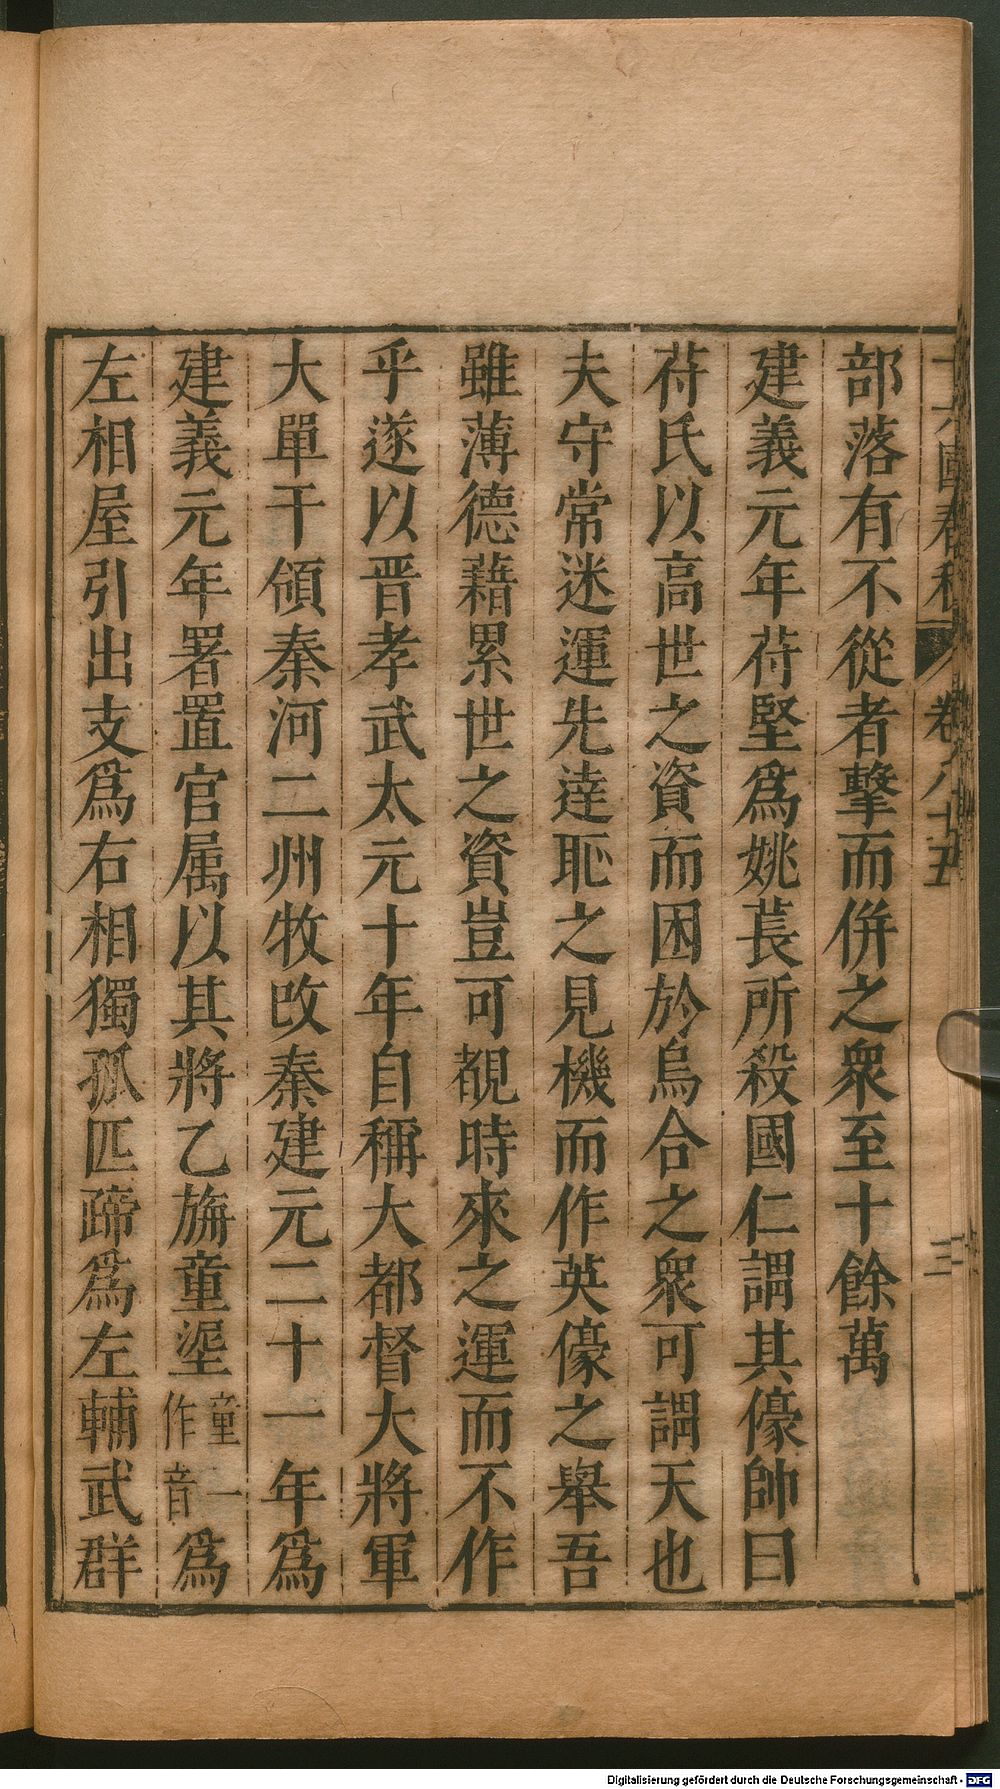 十六國春秋 卷八十五 三
部落有不從者擊而併之衆至十餘萬
建義元年苻堅爲姚萇所殺國仁謂其㝩帥曰
苻氏以高世之資而困於烏合之衆可謂天也
夫守常迷運先達恥之見機而作英㝩之舉吾
雖薄德藉累世之資豈可覩時來之運而不作
乎遂以晉孝武太元十年自稱大都督大將軍
大單于領秦河二州牧改秦建元二十一年爲
建義元年署置官属以其將乙旃童埿童一作音爲
左相屋引出支爲右相獨孤匹蹄爲左輔武群
Digitalisierung gefördert durch die Deutsche Forschungsgemeinschaft - DFG